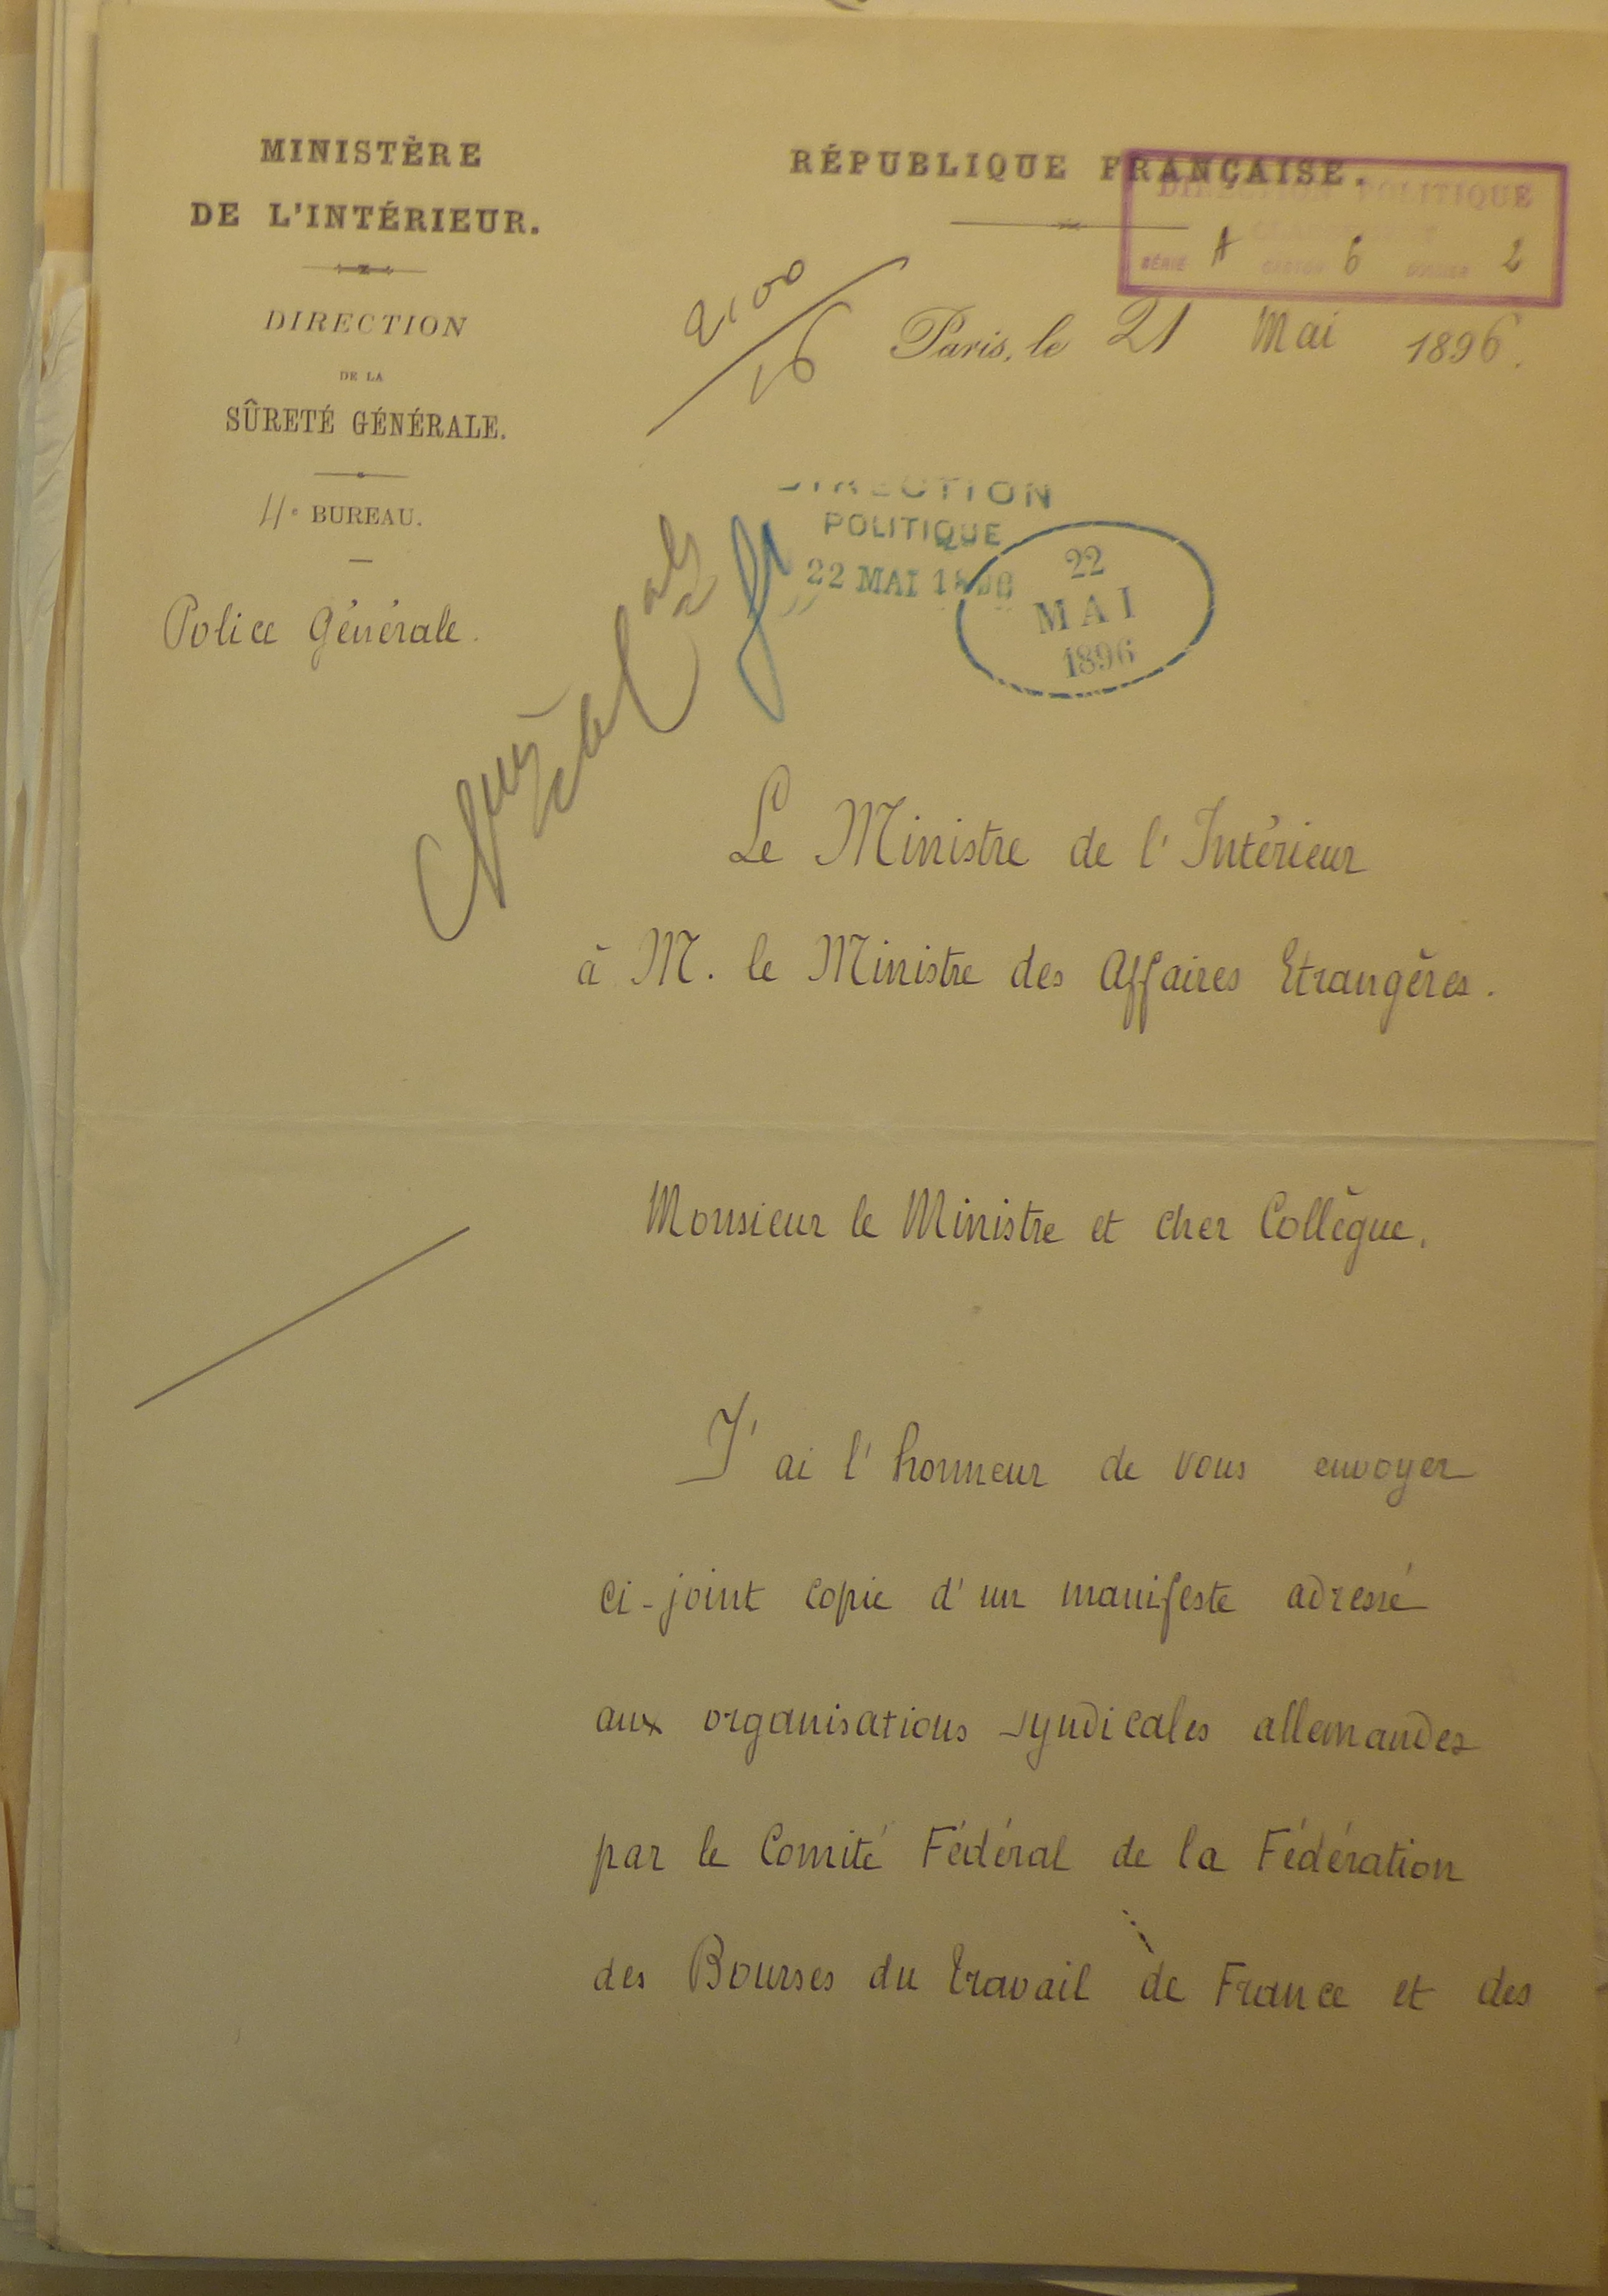 MINISTÈRE
DE L'INTÉRIEUR.
DIRECTION
DE LA
SÛRETÉ GÉNÉRALE.
4e BUREAU.
Police Générale.
RÉPUBLIQUE FRANÇAISE.
DIRECTION POLITIQUE
SÉRIE A CARTON 6 DOSSIER 2
Paris, le 21 Mai 1896.
DIRECTION
POLITIQUE
22 MAI 1896
22
MAI
1896
Le Ministre de l'Intérieur
à M. le Ministre des Affaires Etrangères.
Monsieur le Ministre et cher Collègue,
J'ai l'honneur de vous envoyer
ci-joint copie d'un manifeste adressé
aux organisations syndicales allemandes
par le Comité Fédéral de la Fédération
des Bourses du travail de France et des